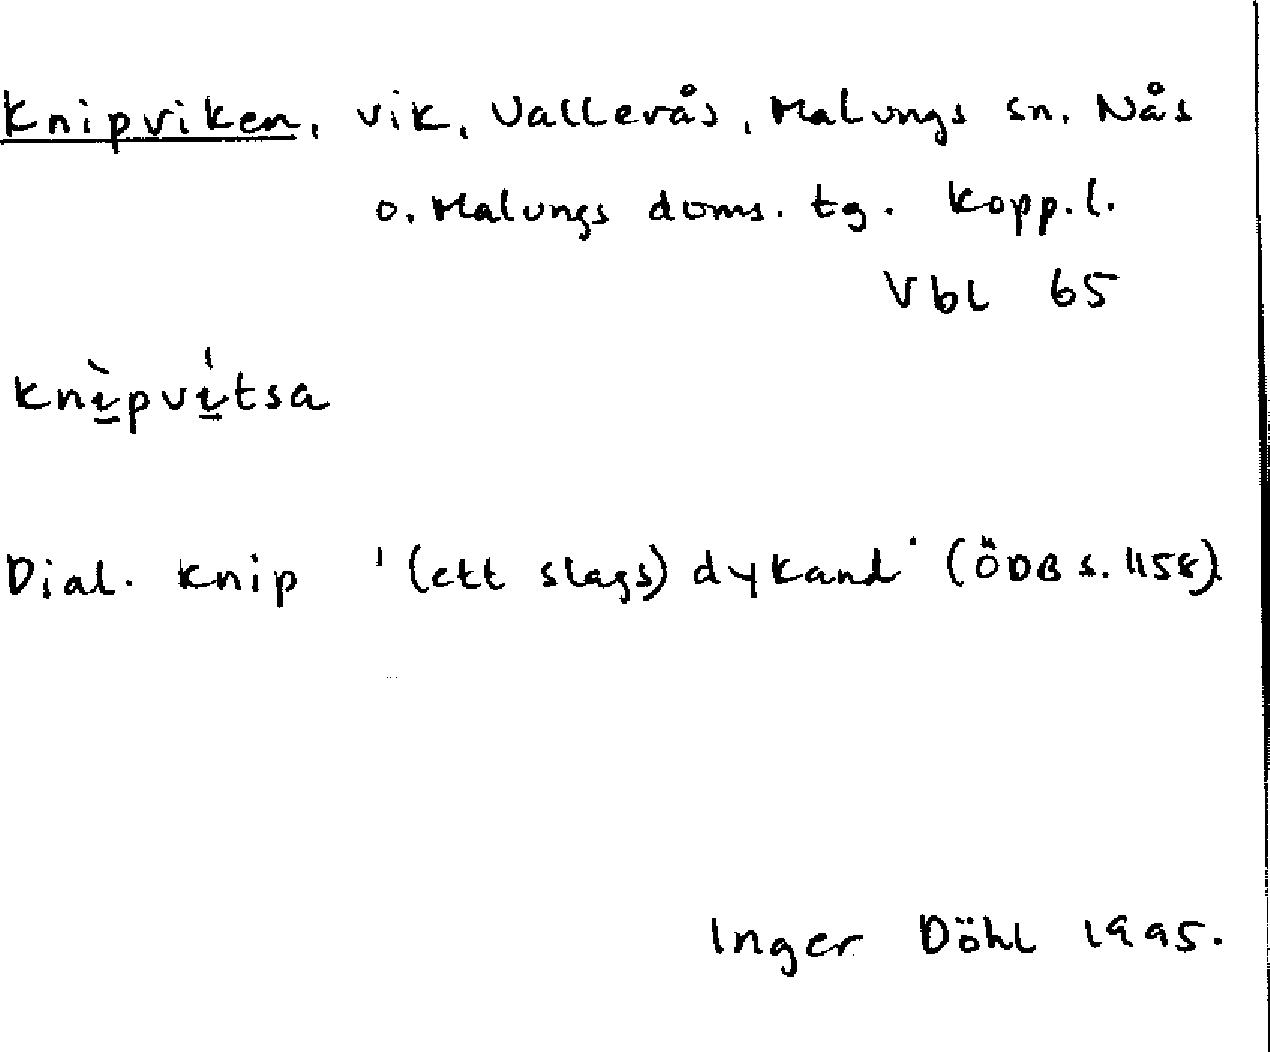 Knipviken, vik, Vallerås, Malungs sn. Nås
o. Malungs doms. tg. Kopp.l.
Vbl 65
knì̲pví̲tsa
Dial. knip '(ett slags) dykand' (ÖDB s. 1158).
Inger Döhl 1995.